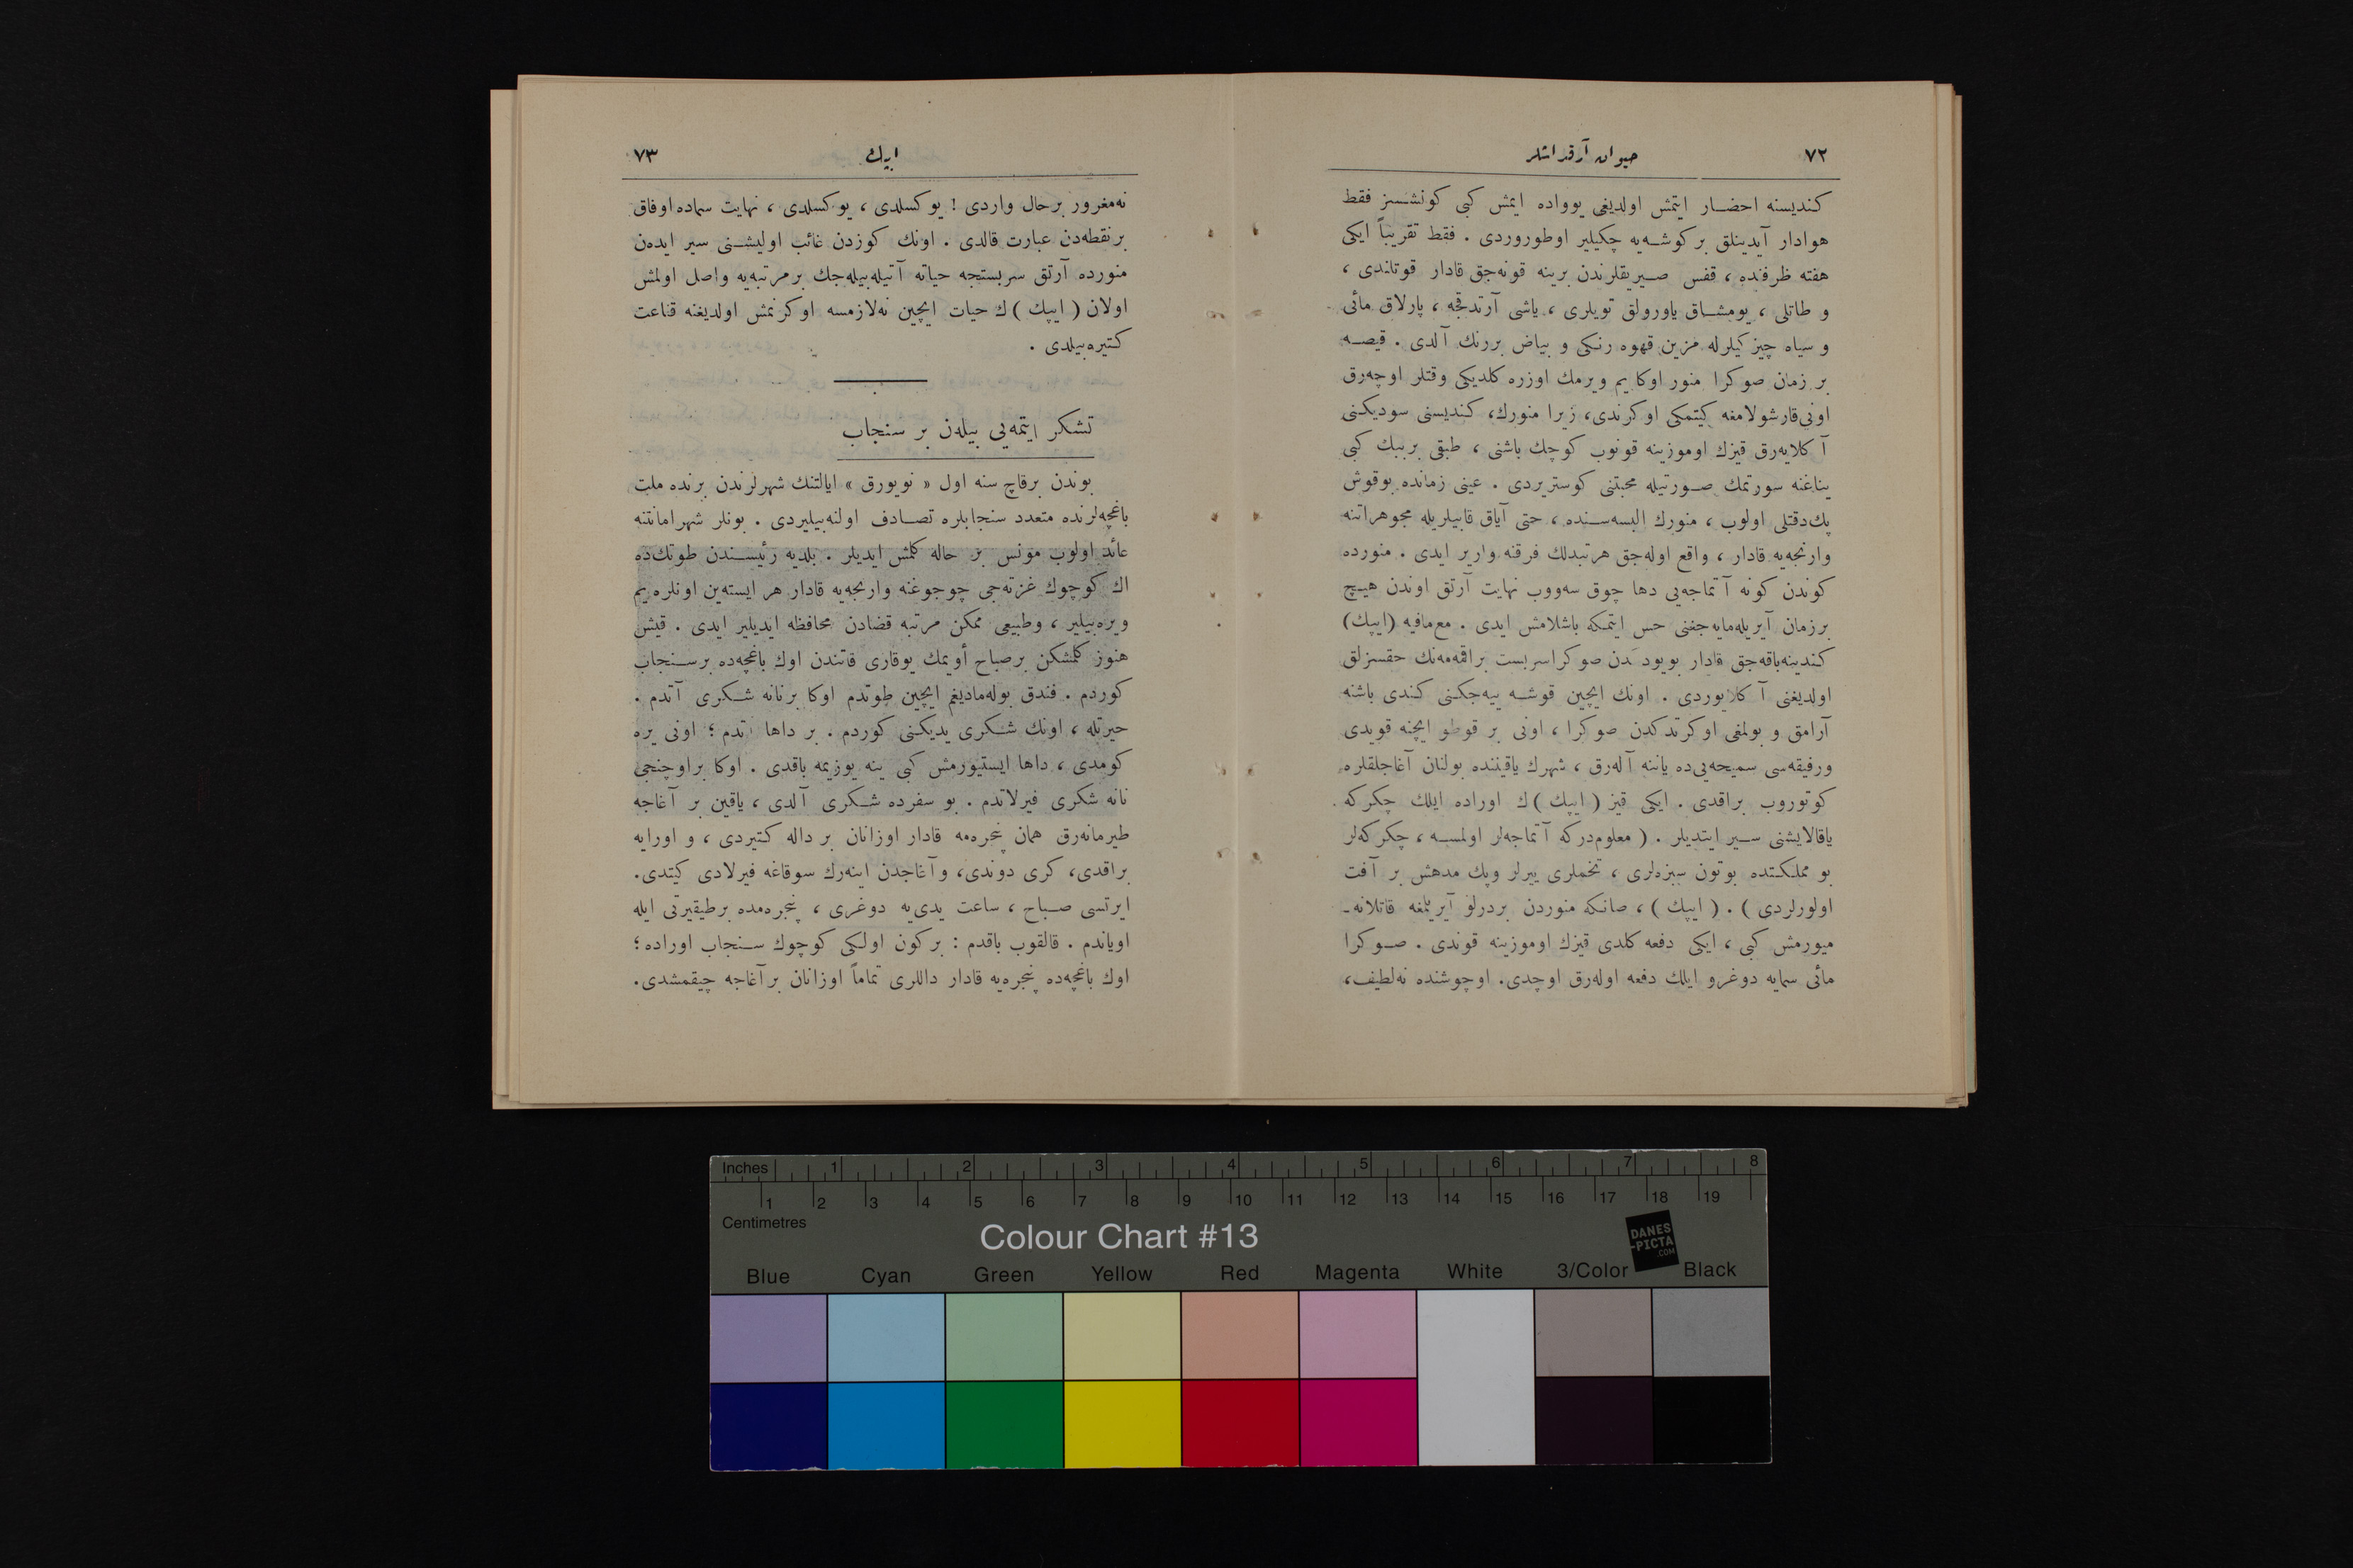 ٧٢
حيوان آرقداشلر
كنديسنه احضار ايتمش اولديغى يوواده ايمش كبى كونشسز فقط
هوادار آيدينلق بر كوشه‌يه چكيلير اوطوروردى . فقط تقريباً ايكى
هفته ظرفنده ، قفس صيريقلرندن برينه قونه‌جق قادار قوتلندى ،
و طاتلى ، يومشاق ياورولق تويلرى ، ياشى آرتدقجه ، پارلاق مائى
و سياه چيزكيلرله مزين قهوه رنكى و بياض بررنك آلدى . قيصه
بر زمان صوكرا منور اوكا يم ويرمك اوزره كلديكى وقتلر اوچه‌رق
اونى قارشولامغه كيتمكى اوكرندى، زيرا منورك، كنديسنى سوديكنى
آكلايه‌رق قيزك اوموزينه قونوب كوچك باشنى ، طبقى بر ببك كبى
يناغنه سورتمك صورتيله محبتنى كوستريردى . عينى زمانده بوقوش
پك دقتلى اولوب ، منورك البسه‌سنده ، حتى آياق قابيلريله مجوهراتنه
وارنجه‌يه قادار ، واقع اوله‌جق هر تبدلك فرقنه وارير ايدى . منورده
كوندن كونه آتماجه‌يى دها چوق سه‌ووب نهايت آرتق اوندن هيچ
برزمان آيريله‌مايه‌جغنى حس ايتمكه باشلامش ايدى . مع‌مافيه (ايپك)
كندينه باقه‌جق قادار بويودكدن صوكرا سربست براقمه‌مه‌نك حقسزلق
اولديغنى آكلايوردى . اونك ايچين قوشه ييه‌جكنى كندى باشنه
آرامق و بولمغى اوكرتدكدن صوكرا ، اونى بر قوطو ايچنه قويدى
ورفيقه‌سى سميحه‌يى‌ده ياننه آله‌رق ، شهرك ياقيننده بولنان آغاجلقلره
كوتوروب براقدى . ايكى قيز (ايپك)ك اوراده ايلك چكركه
ياقالايشنى سير ايتديلر . ( معلومدركه آتماجه‌لر اولمسه ، چكركه‌لر
بو مملكتده بوتون سبزه‌لرى ، تخملرى ييرلر وپك مدهش بر آفت
اولورلردى ) . ( ايپك ) ، صانكه منوردن بردرلو آيريلمغه قاتلانه-
ميورمش كبى ، ايكى دفعه كلدى قيزك اوموزينه قوندى . صوكرا
مائى سمايه دوغرو ايلك دفعه اوله‌رق اوچدى. اوچوشنده نه‌لطيف،
ايپك
٧٣
نه‌مغرور برحال واردى ! يوكسلدى ، يوكسلدى ، نهايت سماده اوفاق
برنقطه‌دن عبارت قالدى . اونك كوزدن غائب اوليشنى سير ايدن
منورده آرتق سربستجه حياته آتيله‌بيله‌جك برمرتبه‌يه واصل اولمش
اولان ( ايپك )ك حيات ايچين نه‌لازمسه اوكرنمش اولديغنه قناعت
كتيره‌بيلدى .
تشكر ايتمه‌يى بيله‌ن بر سنجاب
بوندن برقاچ سنه اول « نويورق » ايالتنك شهرلرندن برنده ملت
باغچه‌لرنده متعدد سنجابلره تصادف اولنه‌بيليردى . بونلر شهرامانتنه
عائد اولوب مونس بر حاله كلمش ايديلر . بلديه رئيسندن طوتك‌ده
اك كوچوك غزته‌جى چوجوغنه وارنجه‌يه قادار هر ايسته‌ين اونلره يم
ويره‌بيلير ، وطبيعى ممكن مرتبه قضادن محافظه ايديلير ايدى . قيش
هنوز كلمشكن برصباح أويمك يوقارى قاتندن اوك باغچه‌ده برسنجاب
كوردم . فندق بوله‌ماديغم ايچين طوتدم اوكا برنانه شكرى آتدم .
حيرتله ، اونك شكرى يديكنى كوردم . بر داها آتدم ؛ اونى يره
كومدى ، داها ايستيورمش كبى ينه يوزيمه باقدى . اوكا براوچنجى
نانه شكرى فيرلاتدم . بو سفرده شكرى آلدى ، ياقين بر آغاجه
طيرمانه‌رق همان پنجره‌مه قادار اوزانان بر داله كتيردى ، و اورايه
براقدى، كرى دوندى، و آغاجدن اينه‌رك سوقاغه فيرلادى كيتدى.
ايرتسى صباح ، ساعت يدى‌يه دوغرى ، پنجره‌مده برطيقيرتى ايله
اوياندم . قالقوب باقدم : بركون اولكى كوچوك سنجاب اوراده ؛
اوك باغچه‌ده پنجره‌يه قادار داللرى تماماً اوزانان برآغاجه چيقمشدى.
Inches 1 2 3 4 5 6 7 8
1 2 3 4 5 6 7 8 9 10 11 12 13 14 15 16 17 18 19
Centimetres
Colour Chart #13
DANES
-PICTA
.COM
Blue Cyan Green Yellow Red Magenta White 3/Color Black